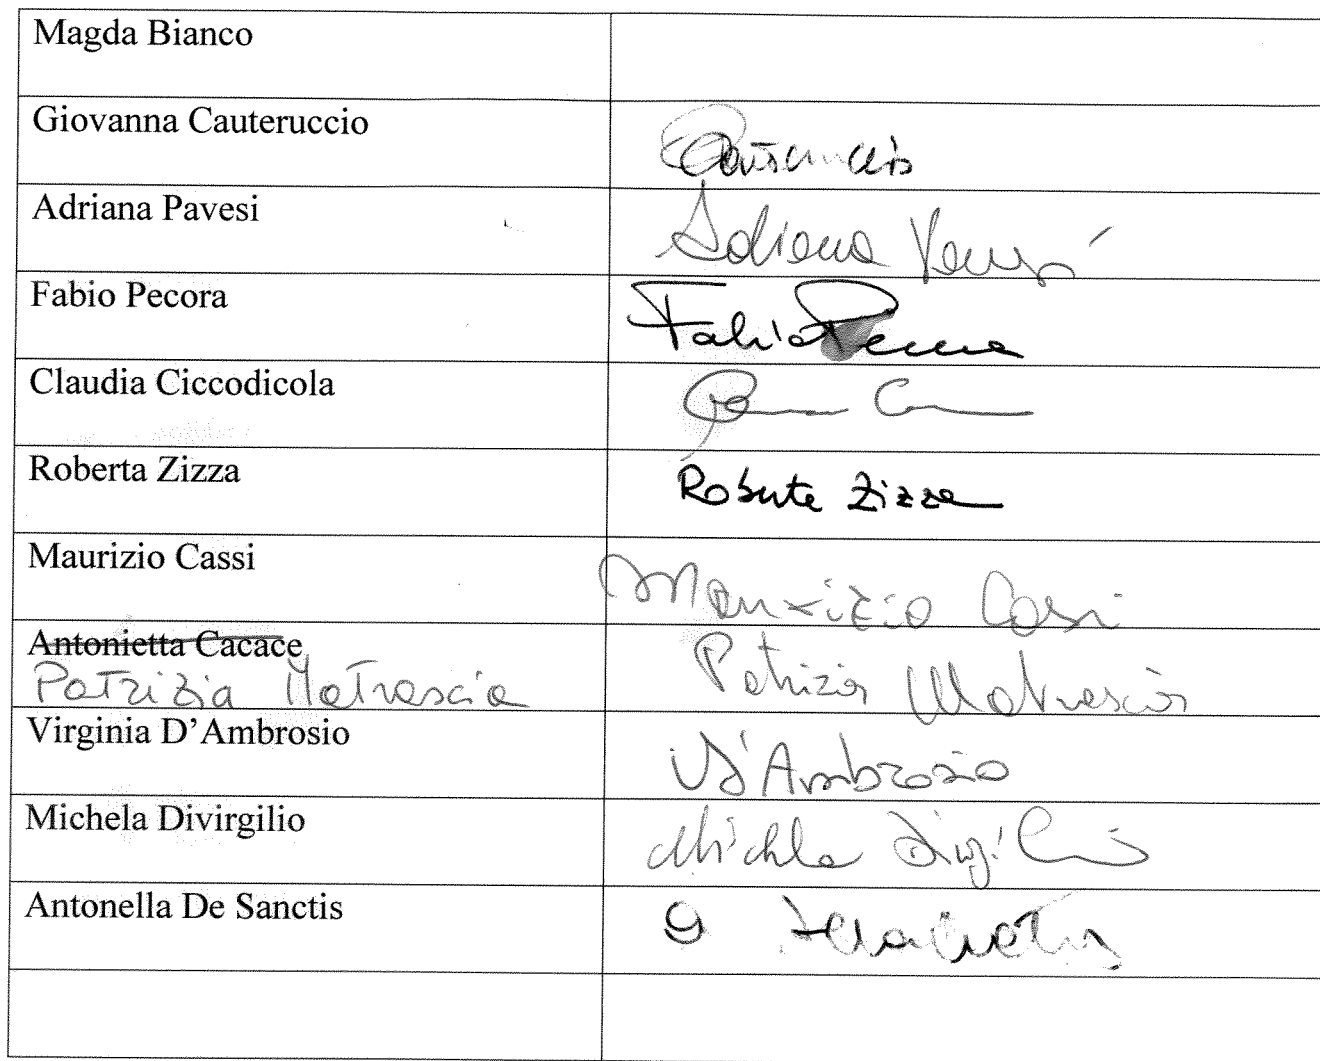 Magda Bianco
Giovanna Cauteruccio
Adriana Pavesi Adriana Pavesi
Fabio Pecora Fabio Pecora
Claudia Ciccodicola
Roberta Zizza Roberta Zizza
Maurizio Cassi Maurizio Cassi
Antonietta Cacace
Patrizia Matrascia Patrizia Matrascia
Virginia D'Ambrosio V D'Ambrosio
Michela Divirgilio Michela
Antonella De Sanctis